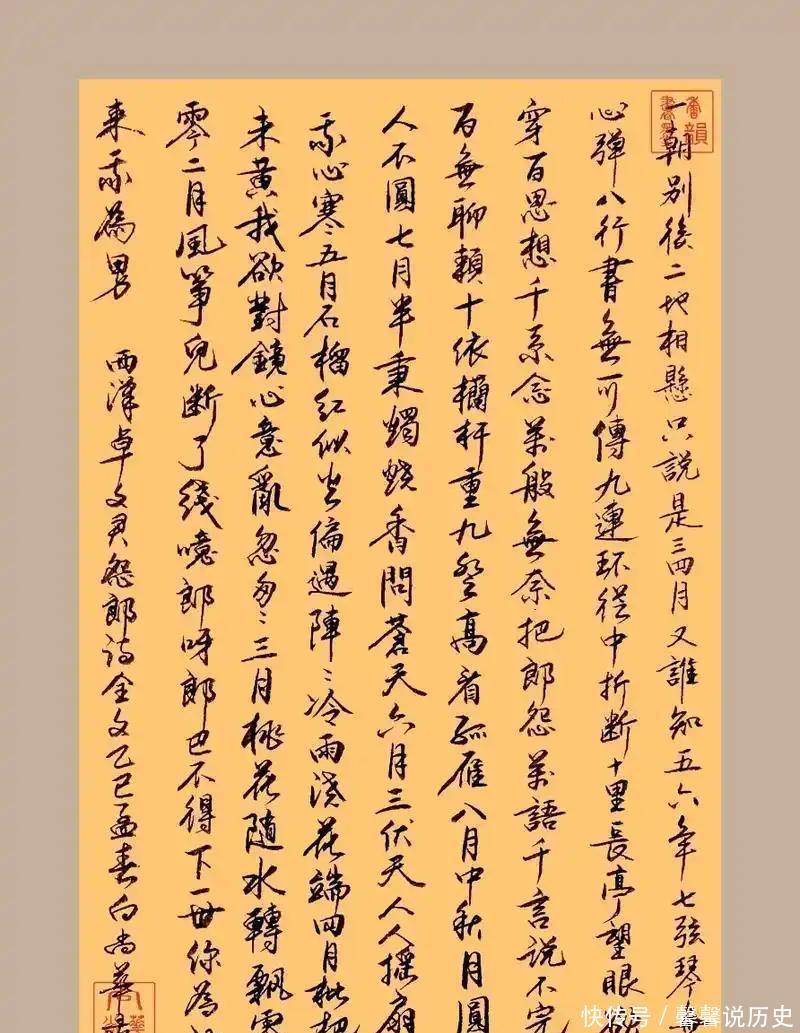 一朝別後二地相懸只說是三四月又誰知五六年七弦琴
心彈八行書無可傳九連环從中折斷十里長亭望眼
穿百思想千系念萬般無奈把郎怨萬語千言說不完
百無聊賴十依欄杆重九登高看孤雁八月中秋月圓
人不圓七月半秉燭燒香問蒼天六月三伏天人人摇扇
我心寒五月石榴红似火偏遇陣〻冷雨澆花端四月枇杷
未黃我欲對鏡心意亂忽匆〻三月桃花隨水轉飄零
零二月風箏兒断了线噫郎呀郎巴不得下一世你為
來我為男 西漢卓文君怨郎诗全文乙巳孟春白尚華
快传号 / 馨馨说历史